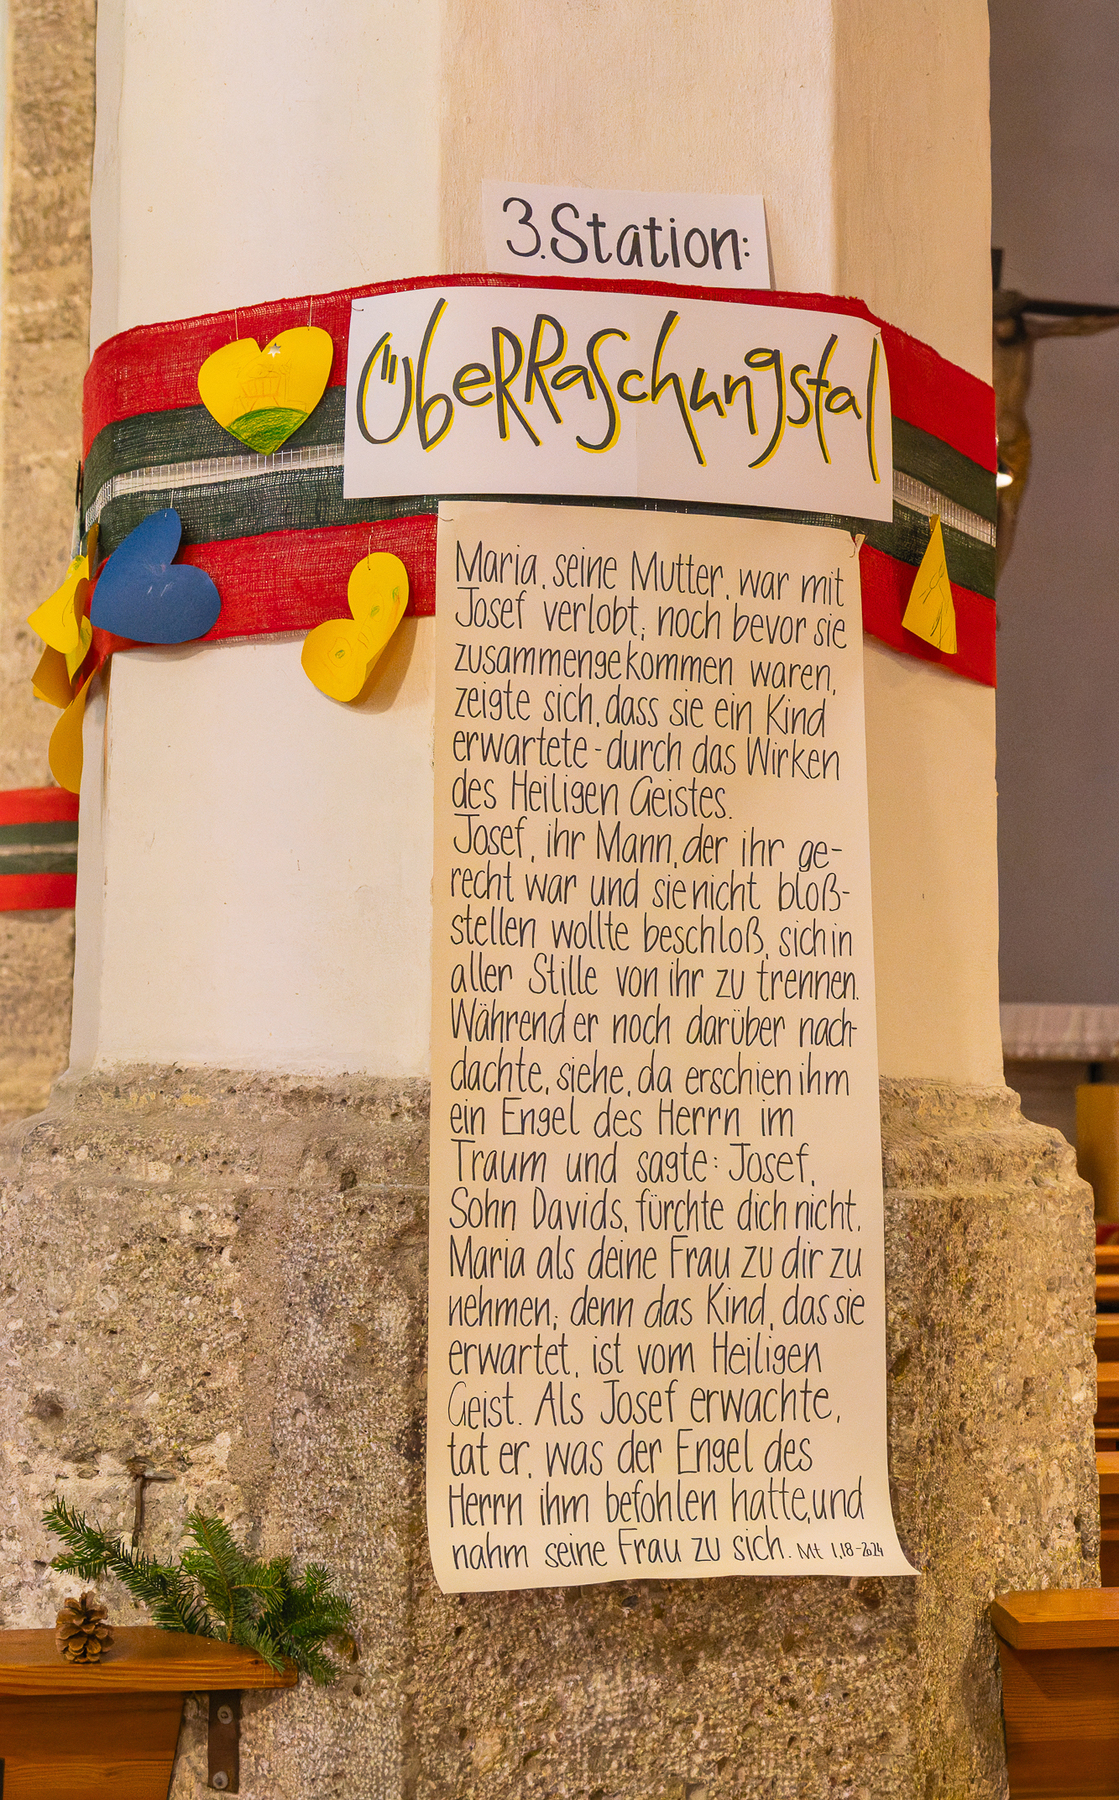 3.Station:
Überraschungstal
Maria, seine Mutter, war mit
Josef verlobt; noch bevor sie
zusammengekommen waren,
zeigte sich, dass sie ein Kind
erwartete - durch das Wirken
des Heiligen Geistes.
Josef, ihr Mann, der ihr ge-
recht war und sie nicht bloß-
stellen wollte beschloß, sich in
aller Stille von ihr zu trennen.
Während er noch darüber nach-
dachte, siehe, da erschien ihm
ein Engel des Herrn im
Traum und sagte: Josef,
Sohn Davids, fürchte dich nicht,
Maria als deine Frau zu dir zu
nehmen; denn das Kind, das sie
erwartet, ist vom Heiligen
Geist. Als Josef erwachte,
tat er, was der Engel des
Herrn ihm befohlen hatte, und
nahm seine Frau zu sich. Mt 1,18-2024